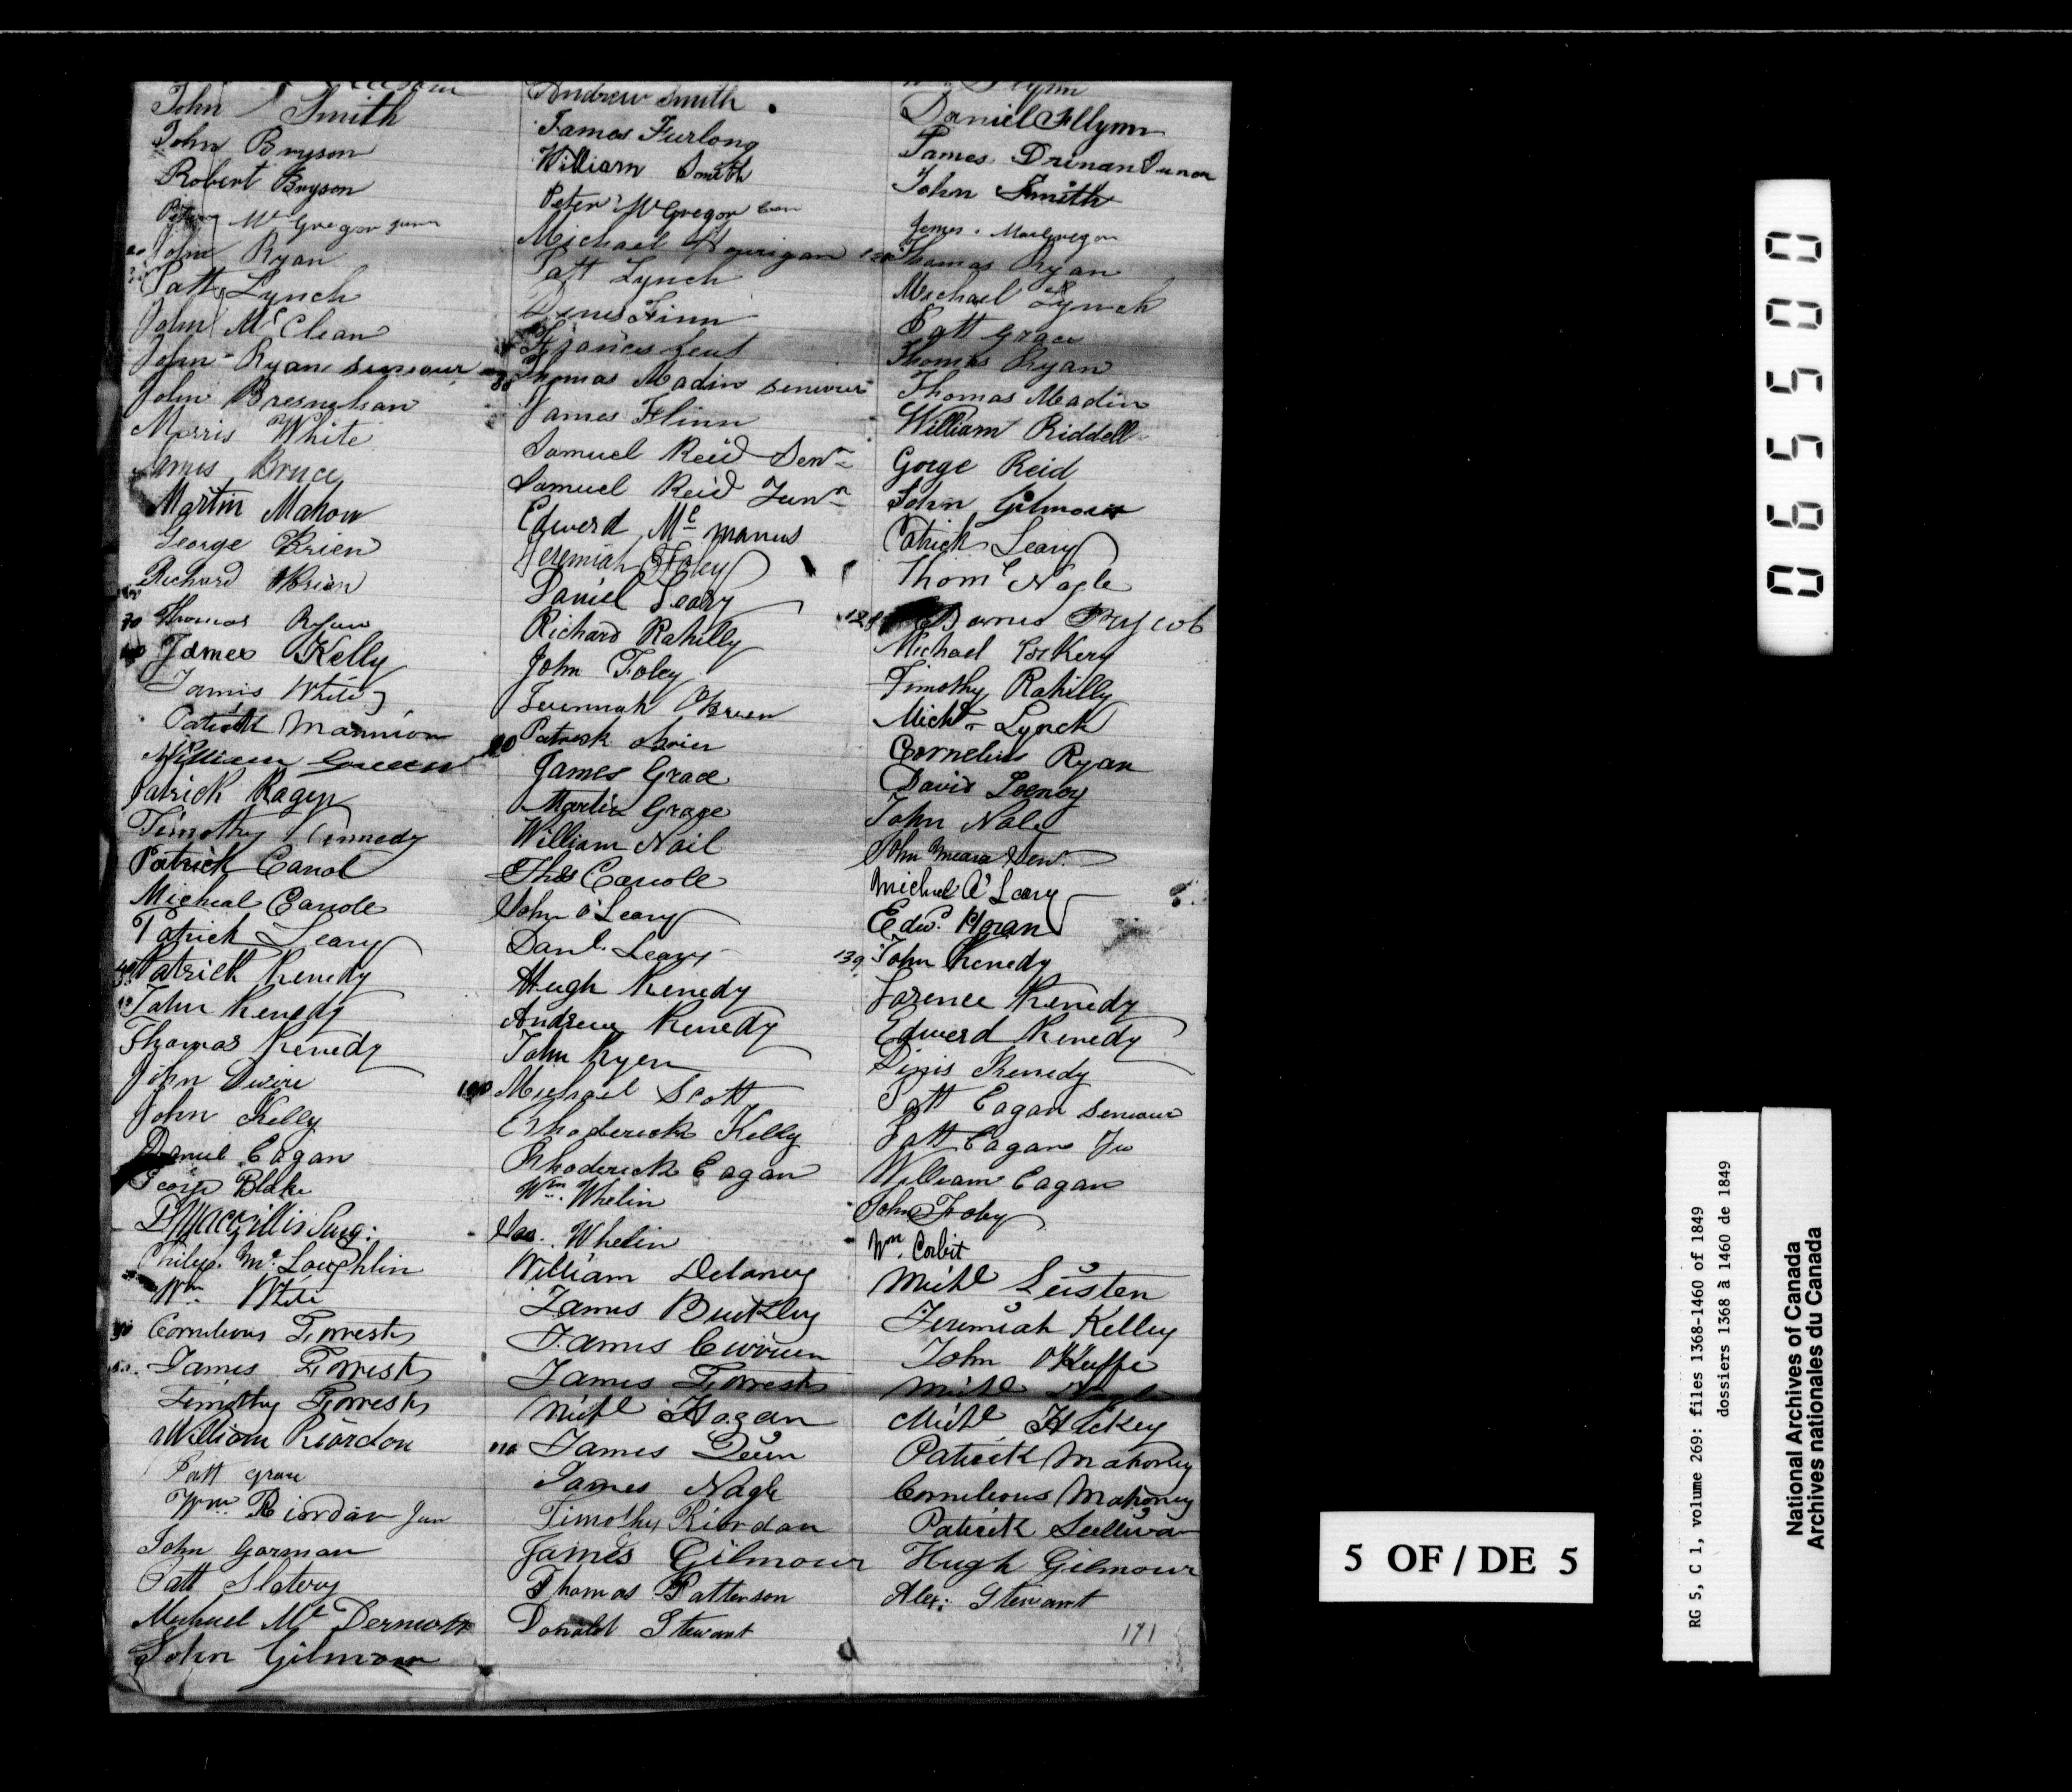 John Smith
John Bryson
Robert Bryson
McGregor junr
John Ryan
Patt Lynch
John McClean
John Ryan
John Bresnahan
Morris White
James Bruce
Martin Mahon
George Brien
Richard OBrien
70 Thomas Ryan
James Kelly
Jamis White
Patrick Mannion
William Green
Patrick Ragen
Timothy Kennedy
Patrick Carrol
Micheal Carrole
Patrick Leary
Patrick Kenedy
John Kenedy
Thomas Kenedy
John Dwire
John Kelly
Daniel Eagan
George Blake
Macgillis Surg:
Philip McLoughlin
Wm White
Cornelious Forrest
James Forrest
Timothy Forrest
William Riordon
Patt grace
Wm Riordan Jun
John Gorman
Patt Slatery
Michael McDermott
John Gilmour
Andrew Smith
James Furlong
William Smith
Peter McGregor
Michael Hourigan
Patt Lynch
Denis Finn
Frances Lent
Thomas Madin seniour
James Flinn
Samuel Reid Senr
Samuel Reid Junr
Edwerd Mc manus
Jeremiah Foley
Daniel Leary
Richard Rahilly
John Foley
OBrien
90 Patrick obrien
James Grace
Martin Grace
William Nail
Thos Carrole
John O'Leary
Danl. Leary
Hugh Kenedy
Andrew Kenedy
John Ryen
100 Michael Scott
Rhoderick Kelly
Rhoderick Eagan
Wm. Whelin
Jas. Whelin
William Delaney
James Buckley
James Curreen
James Forrest
Michl Hogan
110 James Deen
James Nagle
Timothy Riordan
James Gilmour
Thomas Patterson
Donald Stewart
Flynn
Daniel Fllynn
James Drinan Junor
John Smith
James MacGregor
120 Thomas Ryan
Michael Lynch
Patt grace
Thomas Ryan
Thomas Madin
William Riddell
Gorge Reid
John Gilmour
Patrick Leary
Thoms Nagle
Michael Corkery
Timothy Rahilly
Michl Lynch
Cornelius Ryan
David Leenoy
John Nale
John Meara Sen.
Michael O'Leary
Edwd. Horan
139 John Kenedy
Larence Kenedy
Edwerd Kenedy
Dinis Kenedy
Patt Eagan seniour
Patt Eagan Ju
William Eagan
John Foley
Wm. Corbit
Michl Leisten
Jeremiah Kelley
John OKeeffe
Michl Nagle
Michl Hickey
Patrick Mahoney
Cornelious Mahoney
Patrick Sullivan
Hugh Gilmour
Alex: Stewart
171
065500
5 OF / DE 5
RG 5, C 1, volume 269: files 1368-1460 of 1849
dossiers 1368 à 1460 de 1849
National Archives of Canada
Archives nationales du Canada